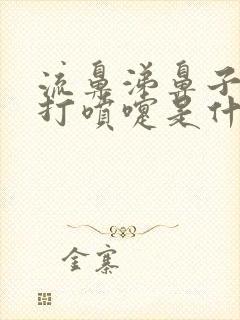 流鼻涕鼻子
打喷嚏是什
金寨